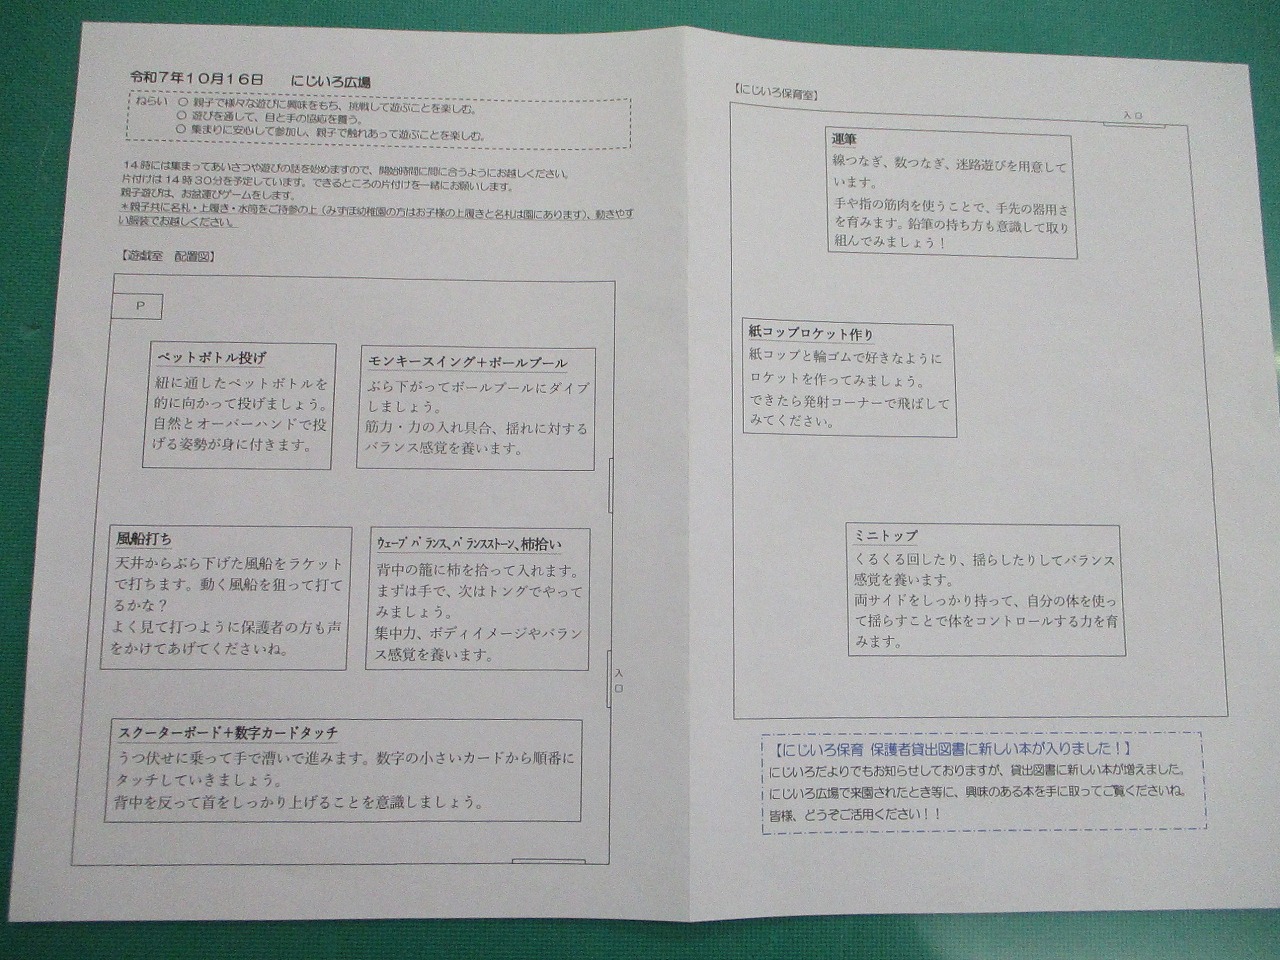 令和7年10月16日　にじいろ広場
ねらい　○ 親子で様々な遊びに興味をもち、挑戦して遊ぶことを楽しむ。
○ 遊びを通して、目と手の協応を養う。
○ 集まりに安心して参加し、親子で触れあって遊ぶことを楽しむ。
14時には集まってあいさつや遊びの話を始めますので、開始時間に間に合うようにお越しください。
片付けは14時30分を予定しています。できるところの片付けを一緒にお願いします。
親子遊びは、お盆運びゲームをします。
＊親子共に名札・上履き・水筒をご持参の上（みずほ幼稚園の方はお子様の上履きと名札は園にあります）、動きやす
い服装でお越しください。
【遊戯室　配置図】
P
ペットボトル投げ
紐に通したペットボトルを
的に向かって投げましょう。
自然とオーバーハンドで投
げる姿勢が身に付きます。
モンキースイング＋ボールプール
ぶら下がってボールプールにダイブ
しましょう。
筋力・力の入れ具合、揺れに対する
バランス感覚を養います。
風船打ち
天井からぶら下げた風船をラケット
で打ちます。動く風船を狙って打て
るかな？
よく見て打つように保護者の方も声
をかけてあげてくださいね。
ｳｪｰﾌﾞﾊﾞﾗﾝｽ、ﾊﾞﾗﾝｽｽﾄｰﾝ、柿拾い
背中の籠に柿を拾って入れます。
まずは手で、次はトングでやって
みましょう。
集中力、ボディイメージやバラン
ス感覚を養います。
入
口
スクーターボード＋数字カードタッチ
うつ伏せに乗って手で漕いで進みます。数字の小さいカードから順番に
タッチしていきましょう。
背中を反って首をしっかり上げることを意識しましょう。
【にじいろ保育室】
入口
運筆
線つなぎ、数つなぎ、迷路遊びを用意して
います。
手や指の筋肉を使うことで、手先の器用さ
を育みます。鉛筆の持ち方も意識して取り
組んでみましょう！
紙コップロケット作り
紙コップと輪ゴムで好きなように
ロケットを作ってみましょう。
できたら発射コーナーで飛ばして
みてください。
ミニトップ
くるくる回したり、揺らしたりしてバランス
感覚を養います。
両サイドをしっかり持って、自分の体を使っ
て揺らすことで体をコントロールする力を育
みます。
【にじいろ保育 保護者貸出図書に新しい本が入りました！】
にじいろだよりでもお知らせしておりますが、貸出図書に新しい本が増えました。
にじいろ広場で来園されたとき等に、興味のある本を手に取ってご覧くださいね。
皆様、どうぞご活用ください！！